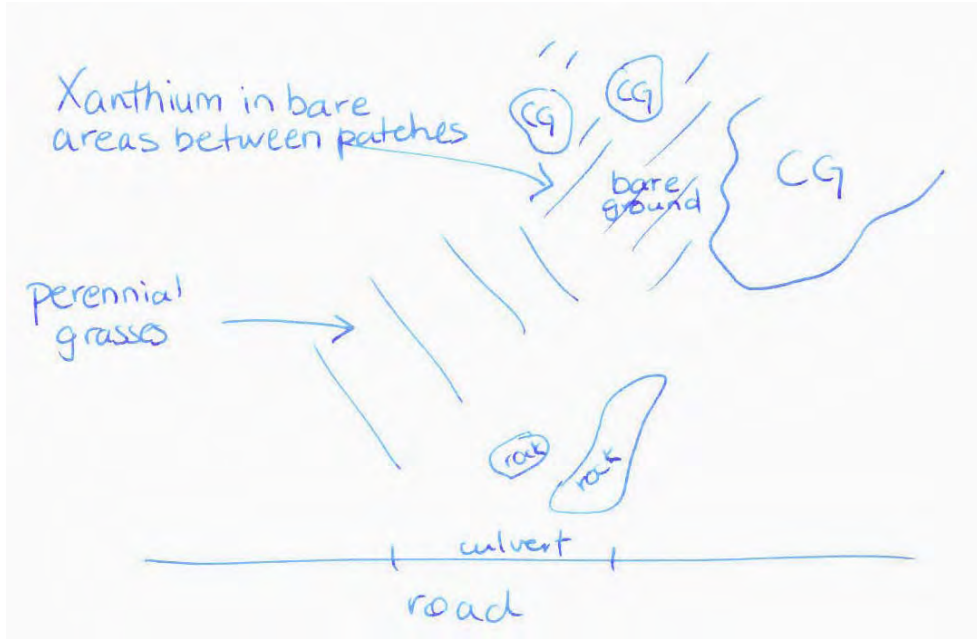 Xanthium in bare
areas between patches
CG
CG
CG
bare
ground
perennial
grasses
rock
rock
culvert
road